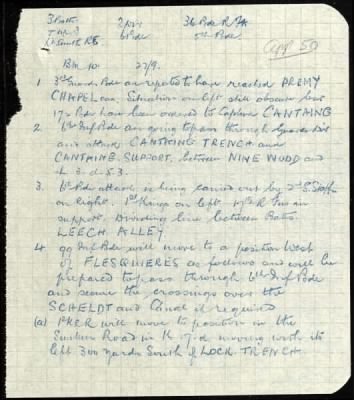 3 Batts 2 Div 36 Bde RFA
6 Bde 5th Bde.
app 50
BM 10. 27/9.
1 3rd Guards Bde are reported to have reached PREMY
CHAPEL area. Situation on left still obscure but
17th Bde have been ordered to capture CANTAING
2. 6th Inf Bde are going to pass through Guards Div
and attack CANTAING TRENCH and
CANTAING SUPPORT, between NINE WOOD and
L 3. d. 5.3.
3. 6th Bde attack is being carried out by 2nd S. Staffs
on right. 1st Kings on left 17th R Fus in
support. Dividing line between Batts.
LEECH ALLEY.
4. 99 Inf Bde will move to a position West
of FLESQUIERES as follows and will be
prepared to pass through 6th Inf Bde
and secure the crossings over the
SCHELDT and Canal if required
(a) 1 KRR will move to position in the
Sunken Road in K moving with its
left 300 yards South of LOCK TRENCH.